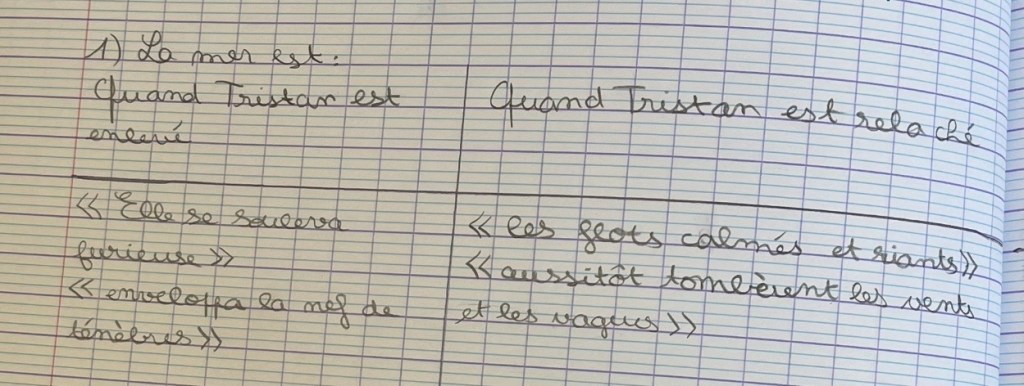 1) La mer est :
Quand Tristan est
enlevé
« Elle se souleva
furieuse »
« enveloppa la nef de
ténèbres »
Quand Tristan est relaché
« les flots calmés et riants »
« aussitôt tombèrent les vents
et les vagues »